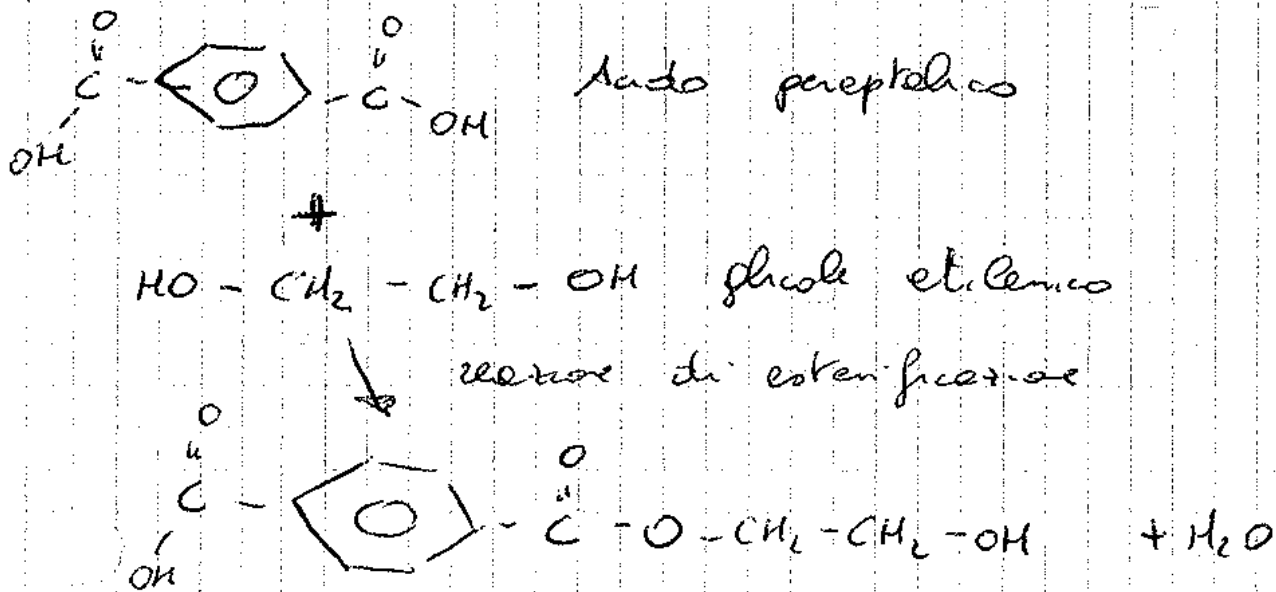 O O
C C Acido pereptalico
OH OH
+
HO - CH2 - CH2 - OH glicole etilenico
reazione di esterificazione
O O
C C - O - CH2 - CH2 - OH + H2O
OH